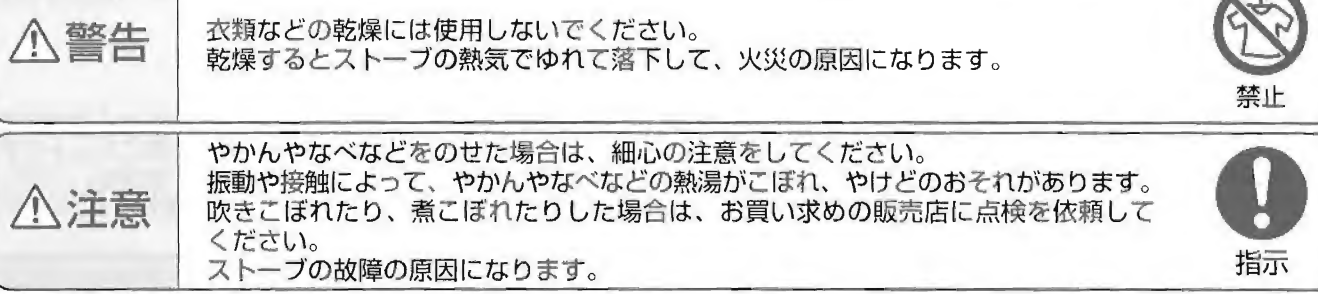 ⚠警告
衣類などの乾燥には使用しないでください。
乾燥するとストーブの熱気でゆれて落下して、火災の原因になります。
禁止
⚠注意
やかんやなべなどをのせた場合は、細心の注意をしてください。
振動や接触によって、やかんやなべなどの熱湯がこぼれ、やけどのおそれがあります。
吹きこぼれたり、煮こぼれたりした場合は、お買い求めの販売店に点検を依頼して
ください。
ストーブの故障の原因になります。
指示